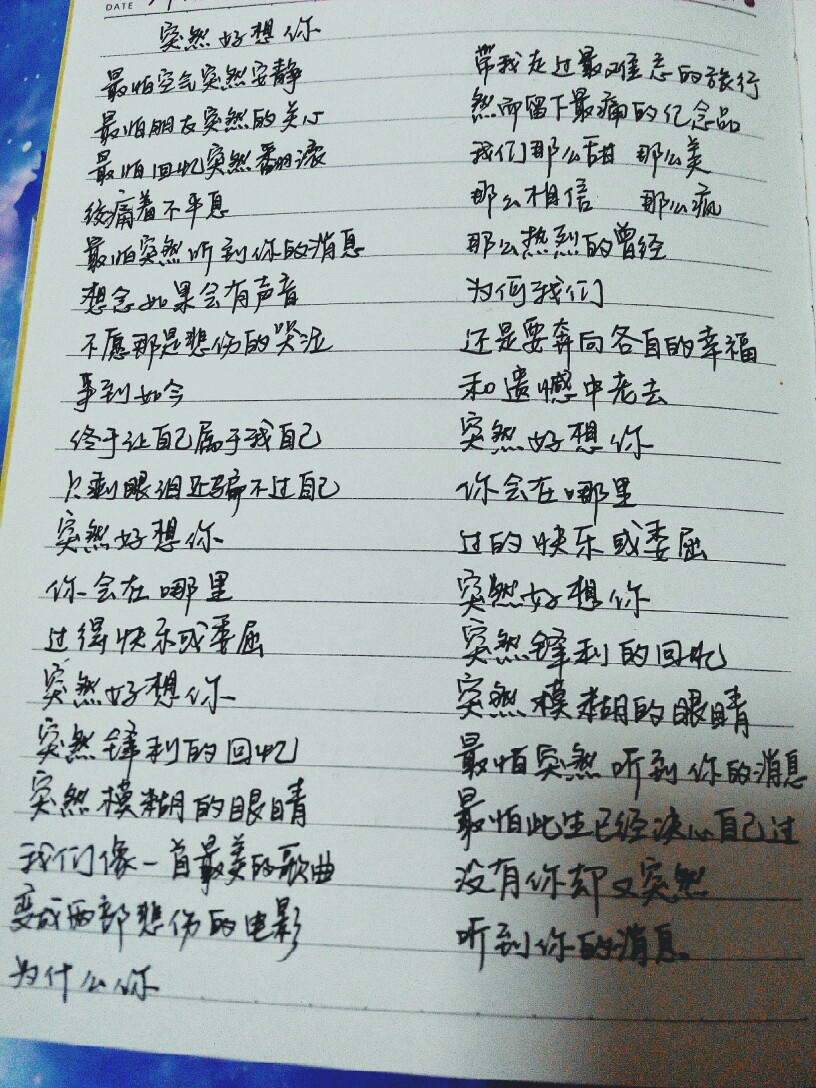 DATE
突然好想你
最怕空气突然安静
最怕朋友突然的关心
最怕回忆突然翻滚
绞痛着不平息
最怕突然听到你的消息
想念如果会有声音
不愿那是悲伤的哭泣
事到如今
终于让自己属于我自己
只剩眼泪还骗不过自己
突然好想你
你会在哪里
过得快乐或委屈
突然好想你
突然锋利的回忆
突然模糊的眼睛
我们像一首最美的歌曲
变成两部悲伤的电影
为什么你
带我走过最难忘的旅行
然而留下最痛的纪念品
我们那么甜 那么美
那么相信 那么疯
那么热烈的曾经
为何我们
还是要奔向各自的幸福
和遗憾中老去
突然好想你
你会在哪里
过的快乐或委屈
突然好想你
突然锋利的回忆
突然模糊的眼睛
最怕突然听到你的消息
最怕此生已经决心自己过
没有你却又突然
听到你的消息。